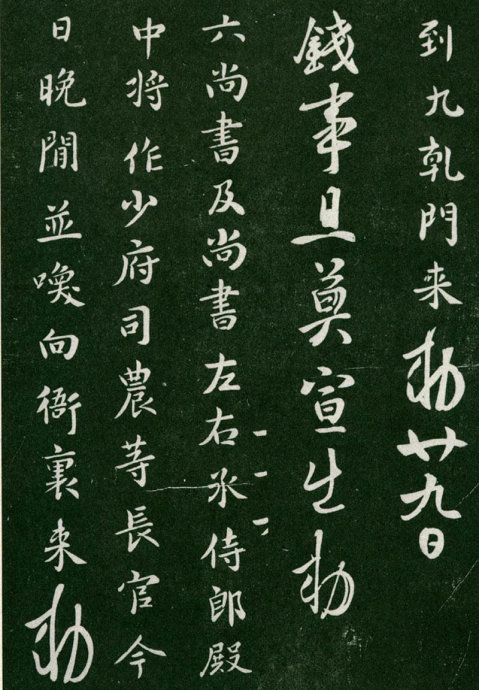 到九乹門来勅廿九日
錢事且莫宣出勅
六尚書及尚書左右丞侍郎殿
中将作少府司農等長官今
日晚間並喚向衙裏来勅